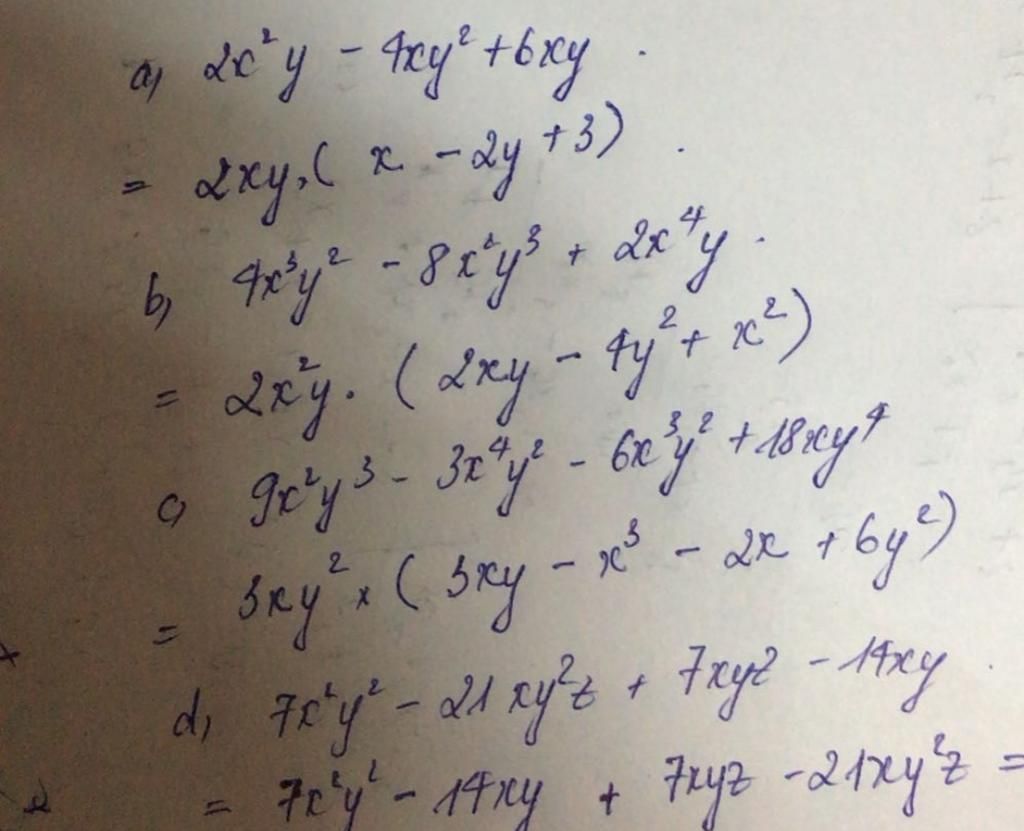 a, 2x²y - 4xy² + 6xy .
= 2xy.( x - 2y + 3) .
b, 4x³y² - 8x²y³ + 2x⁴y .
= 2x²y. ( 2xy - 4y² + x²)
c, 9x²y³ - 3x⁴y² - 6x³y² + 18xy⁴
= 3xy² x ( 3xy - x³ - 2x + 6y²)
d, 7x²y² - 21xy²z + 7xyz - 14xy .
= 7x²y² - 14xy + 7xyz - 21xy²z =